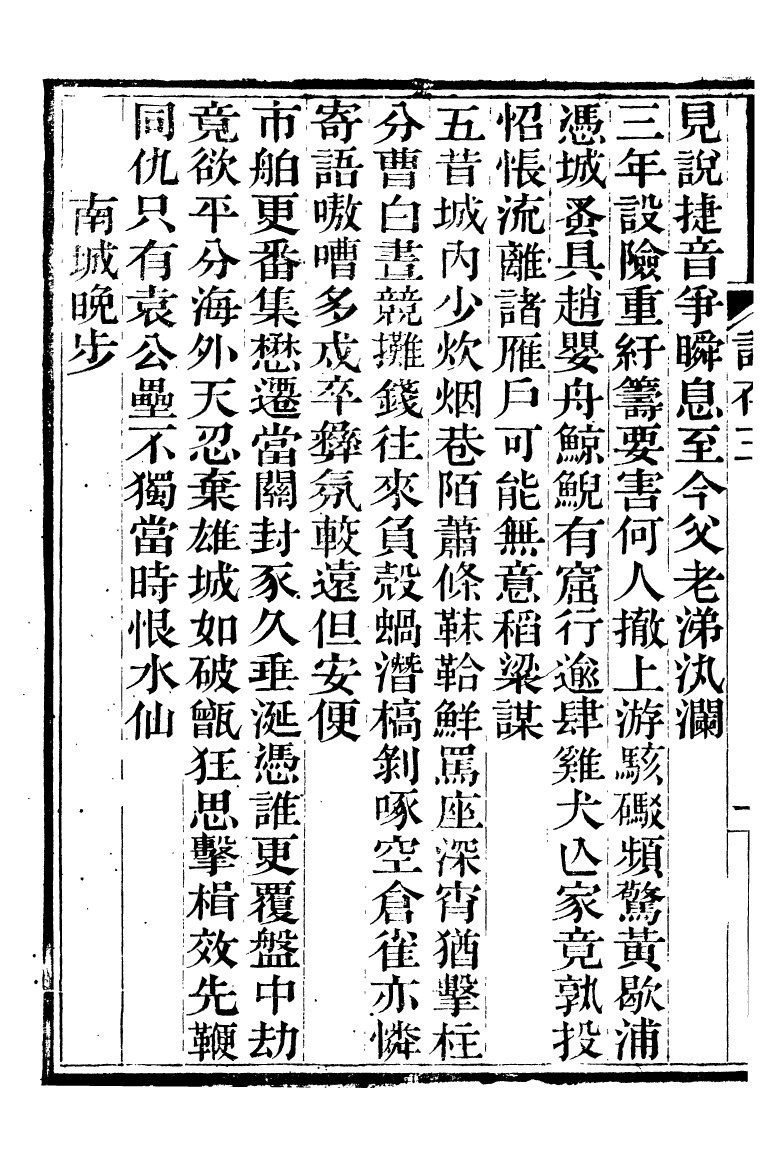 見說捷音爭瞬息至今父老涕汍瀾
三年設險重紆籌要害何人撤上游駭礮頻驚黃歇浦
憑城蚤具趙嬰舟鯨鯢有窟行逾肆雞犬亾家竟孰投
怊悵流離諸雁戶可能無意稻粱謀
五昔城內少炊烟巷陌蕭條靺鞈鮮罵座深宵猶擊柱
分曹白晝競攤錢往來負殼蝸潛槁剝啄空倉雀亦憐
寄語嗷嘈多戍卒彞氛較遠但安便
市舶更番集懋遷當關封豕久垂涎憑誰更覆盤中劫
竟欲平分海外天忍棄雄城如破甑狂思擊楫效先鞭
同仇只有袁公壘不獨當時恨水仙
南城晚步